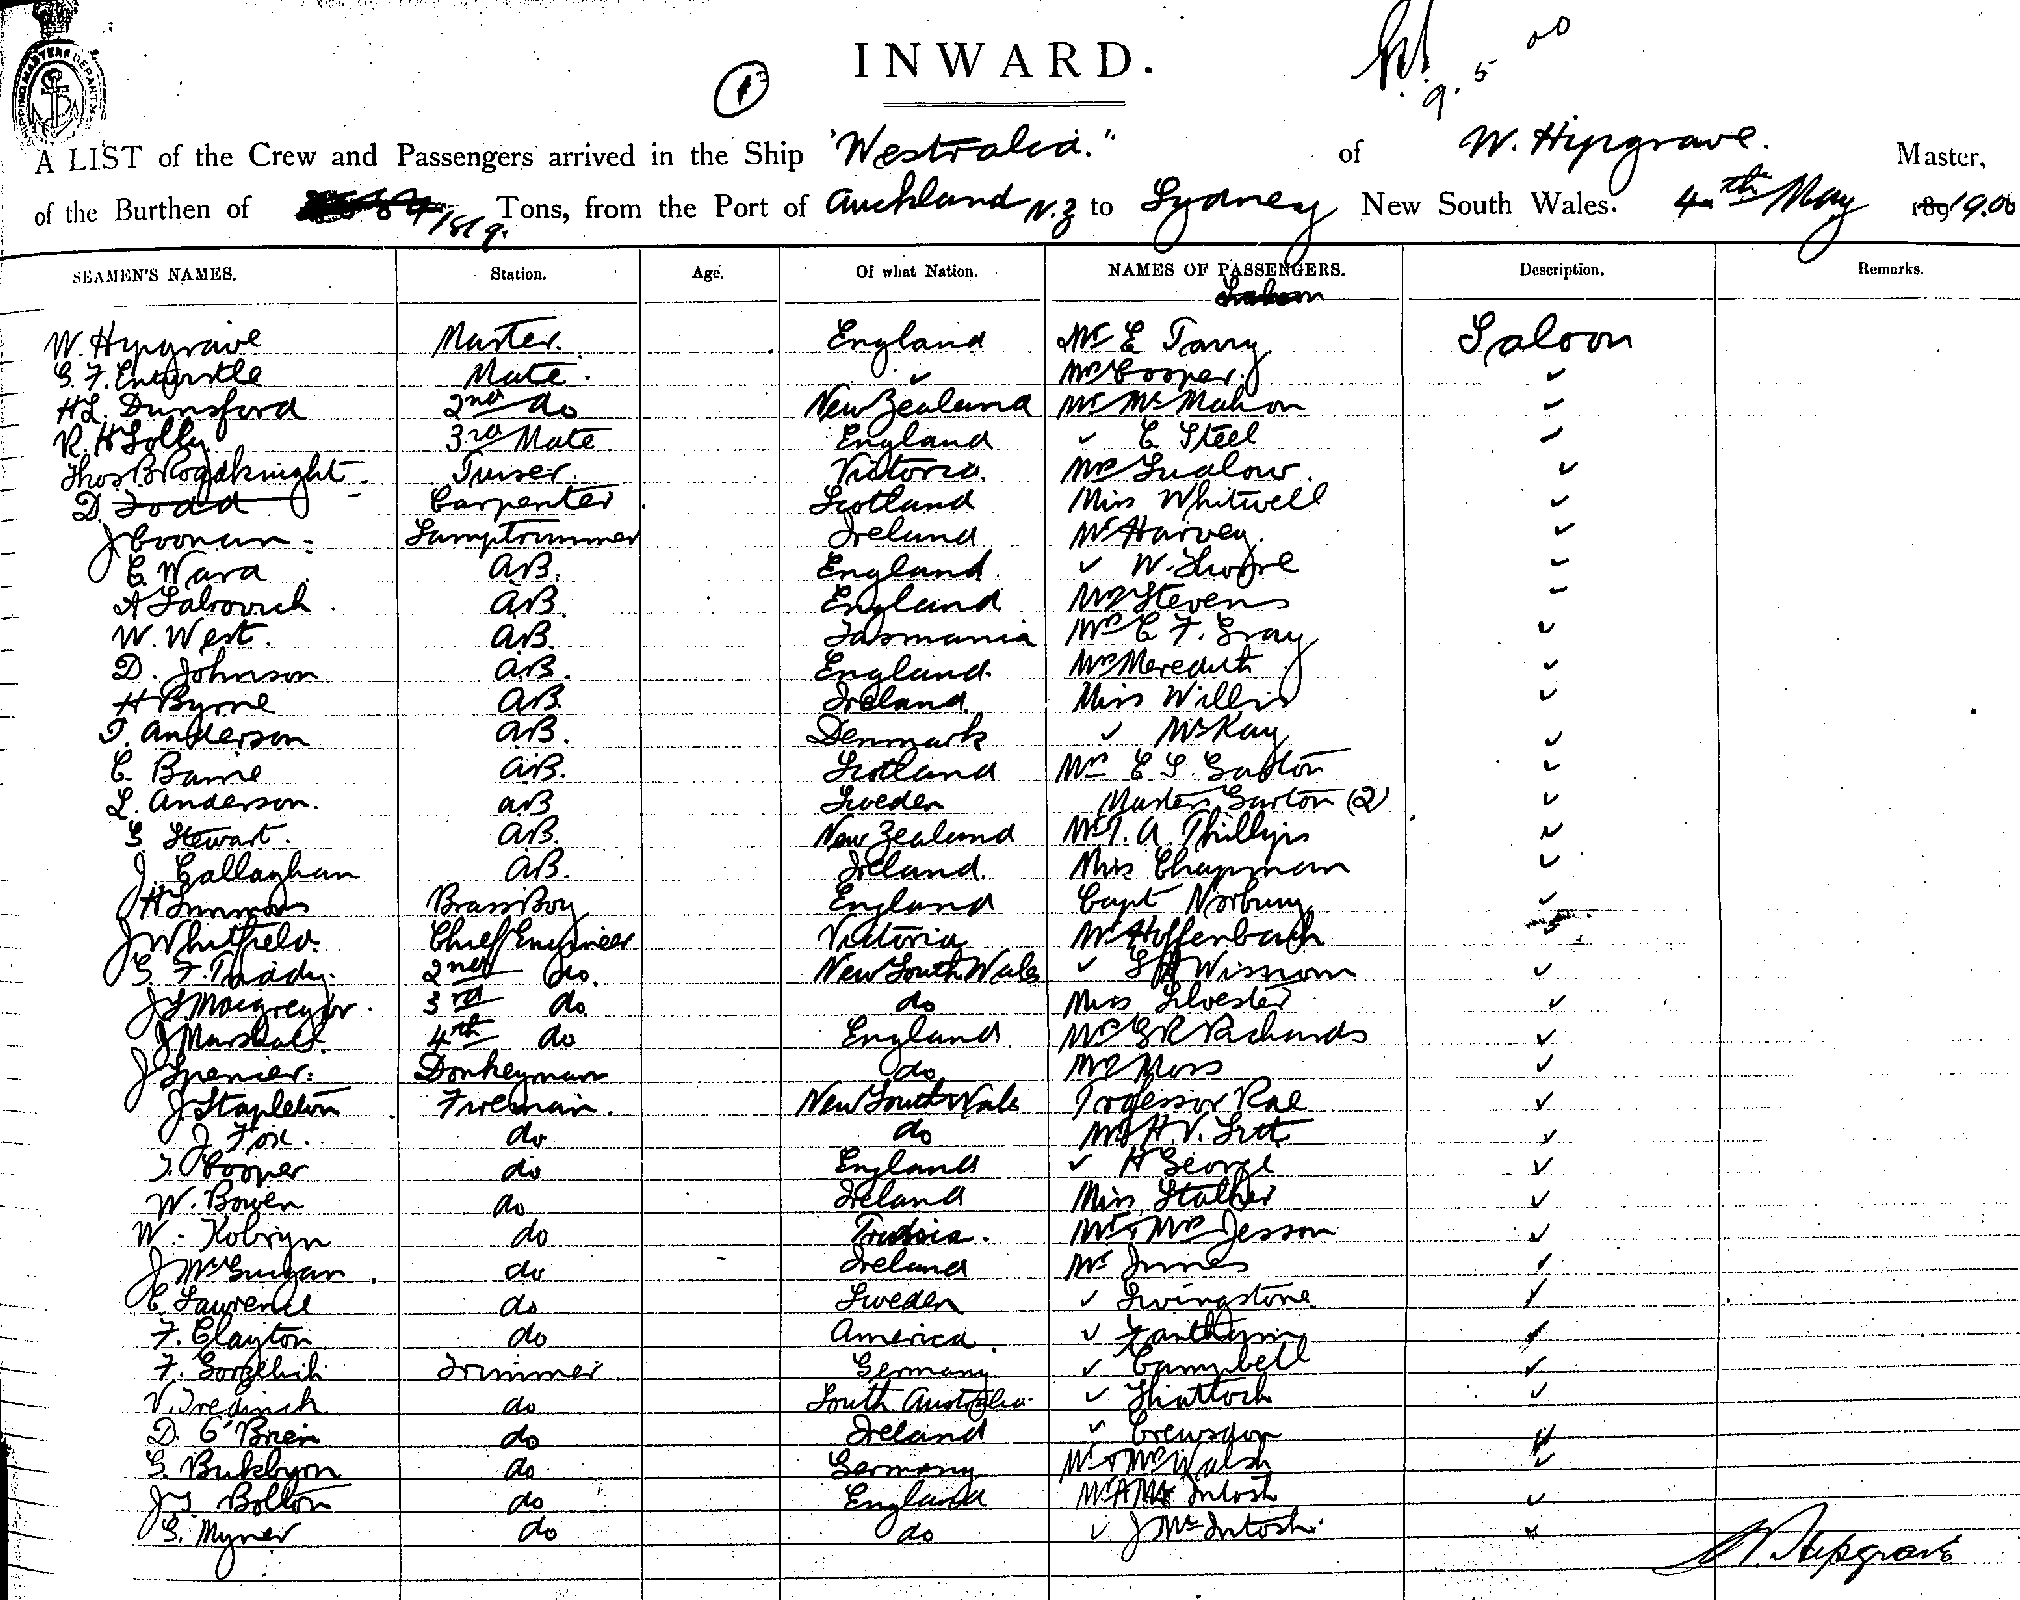 INWARD.
9.5.00
A LIST of the Crew and Passengers arrived in the Ship "Westralia." of W. Hipgrave. Master,
of the Burthen of 1819. Tons, from the Port of Auckland N.Z to Sydney New South Wales. 4th May 1900
SEAMEN'S NAMES. Station. Age. Of what Nation. NAMES OF PASSENGERS. Description. Remarks.
W. Hipgrave Master. England Mr E Tarry Saloon
G. F. Entwistle Mate. ✓ Mrs Cooper. ✓
H L. Dunsford 2nd do New Zealand Mr McMahon ✓
R. H Lolly 3rd Mate England ✓ E Steel ✓
Thos B Roadknight. Purser. Victoria. Mrs Ludlow. ✓
D. Todd Carpenter Scotland Miss Whitwell ✓
J Coonan Lamptrimmer Ireland Mr Harvey. ✓
C. Ward A.B. England ✓ W. Thorpe ✓
A. A.B. England Mrs Stevens ✓
W. West. A.B. Tasmania Mrs C F. Gray ✓
D. Johnson A.B. England. Mrs Meredith ✓
H Byrne A.B. Ireland. Miss Willis ✓
Anderson A.B. Denmark ✓ McKay ✓
C. Barrie A.B. Scotland Mrs E S. Garton ✓
L. Anderson. A.B. Sweden Masters Garton (2) ✓
G Stewart. A.B. New Zealand A. Phillips ✓
J. Gallaghan A.B. Ireland. Miss Chapman ✓
H Simmons Brass Boy England Capt Norbury ✓
J Whitfield. Chief Engineer Victoria Mr Hoffenbach
G. F. 2nd do. New South Wales ✓ ✓
J S Macgregor. 3rd do do Miss Silvester ✓
J Marshall. 4th do England Mrs G R Richards ✓
J Spencer. Donkeyman do Mrs Moss ✓
J Stapleton Fireman. New South Wales Professor Rae ✓
J Fox. do do H. V. ✓
Cooper do England ✓ H George ✓
W. Bowen do Ireland Miss Stalker ✓
W. Kobryn do Mr & Mrs Jesson ✓
J McGuigan. do Ireland Mr Innes ✓
C. Lawrence do Sweden ✓ Livingstone ✓
F. Clayton do America. ✓ ✓
F. Trimmer Germany ✓ Campbell ✓
V. Tredinick do South Australia. ✓ Shattock ✓
D. O'Brien do Ireland ✓ Crewsdon ✓
G. do Germany Mr & Mrs Walsh ✓
Bolton do England Mr A McIntosh ✓
G. Myner do do ✓ J McIntosh ✓
W. Hipgrave